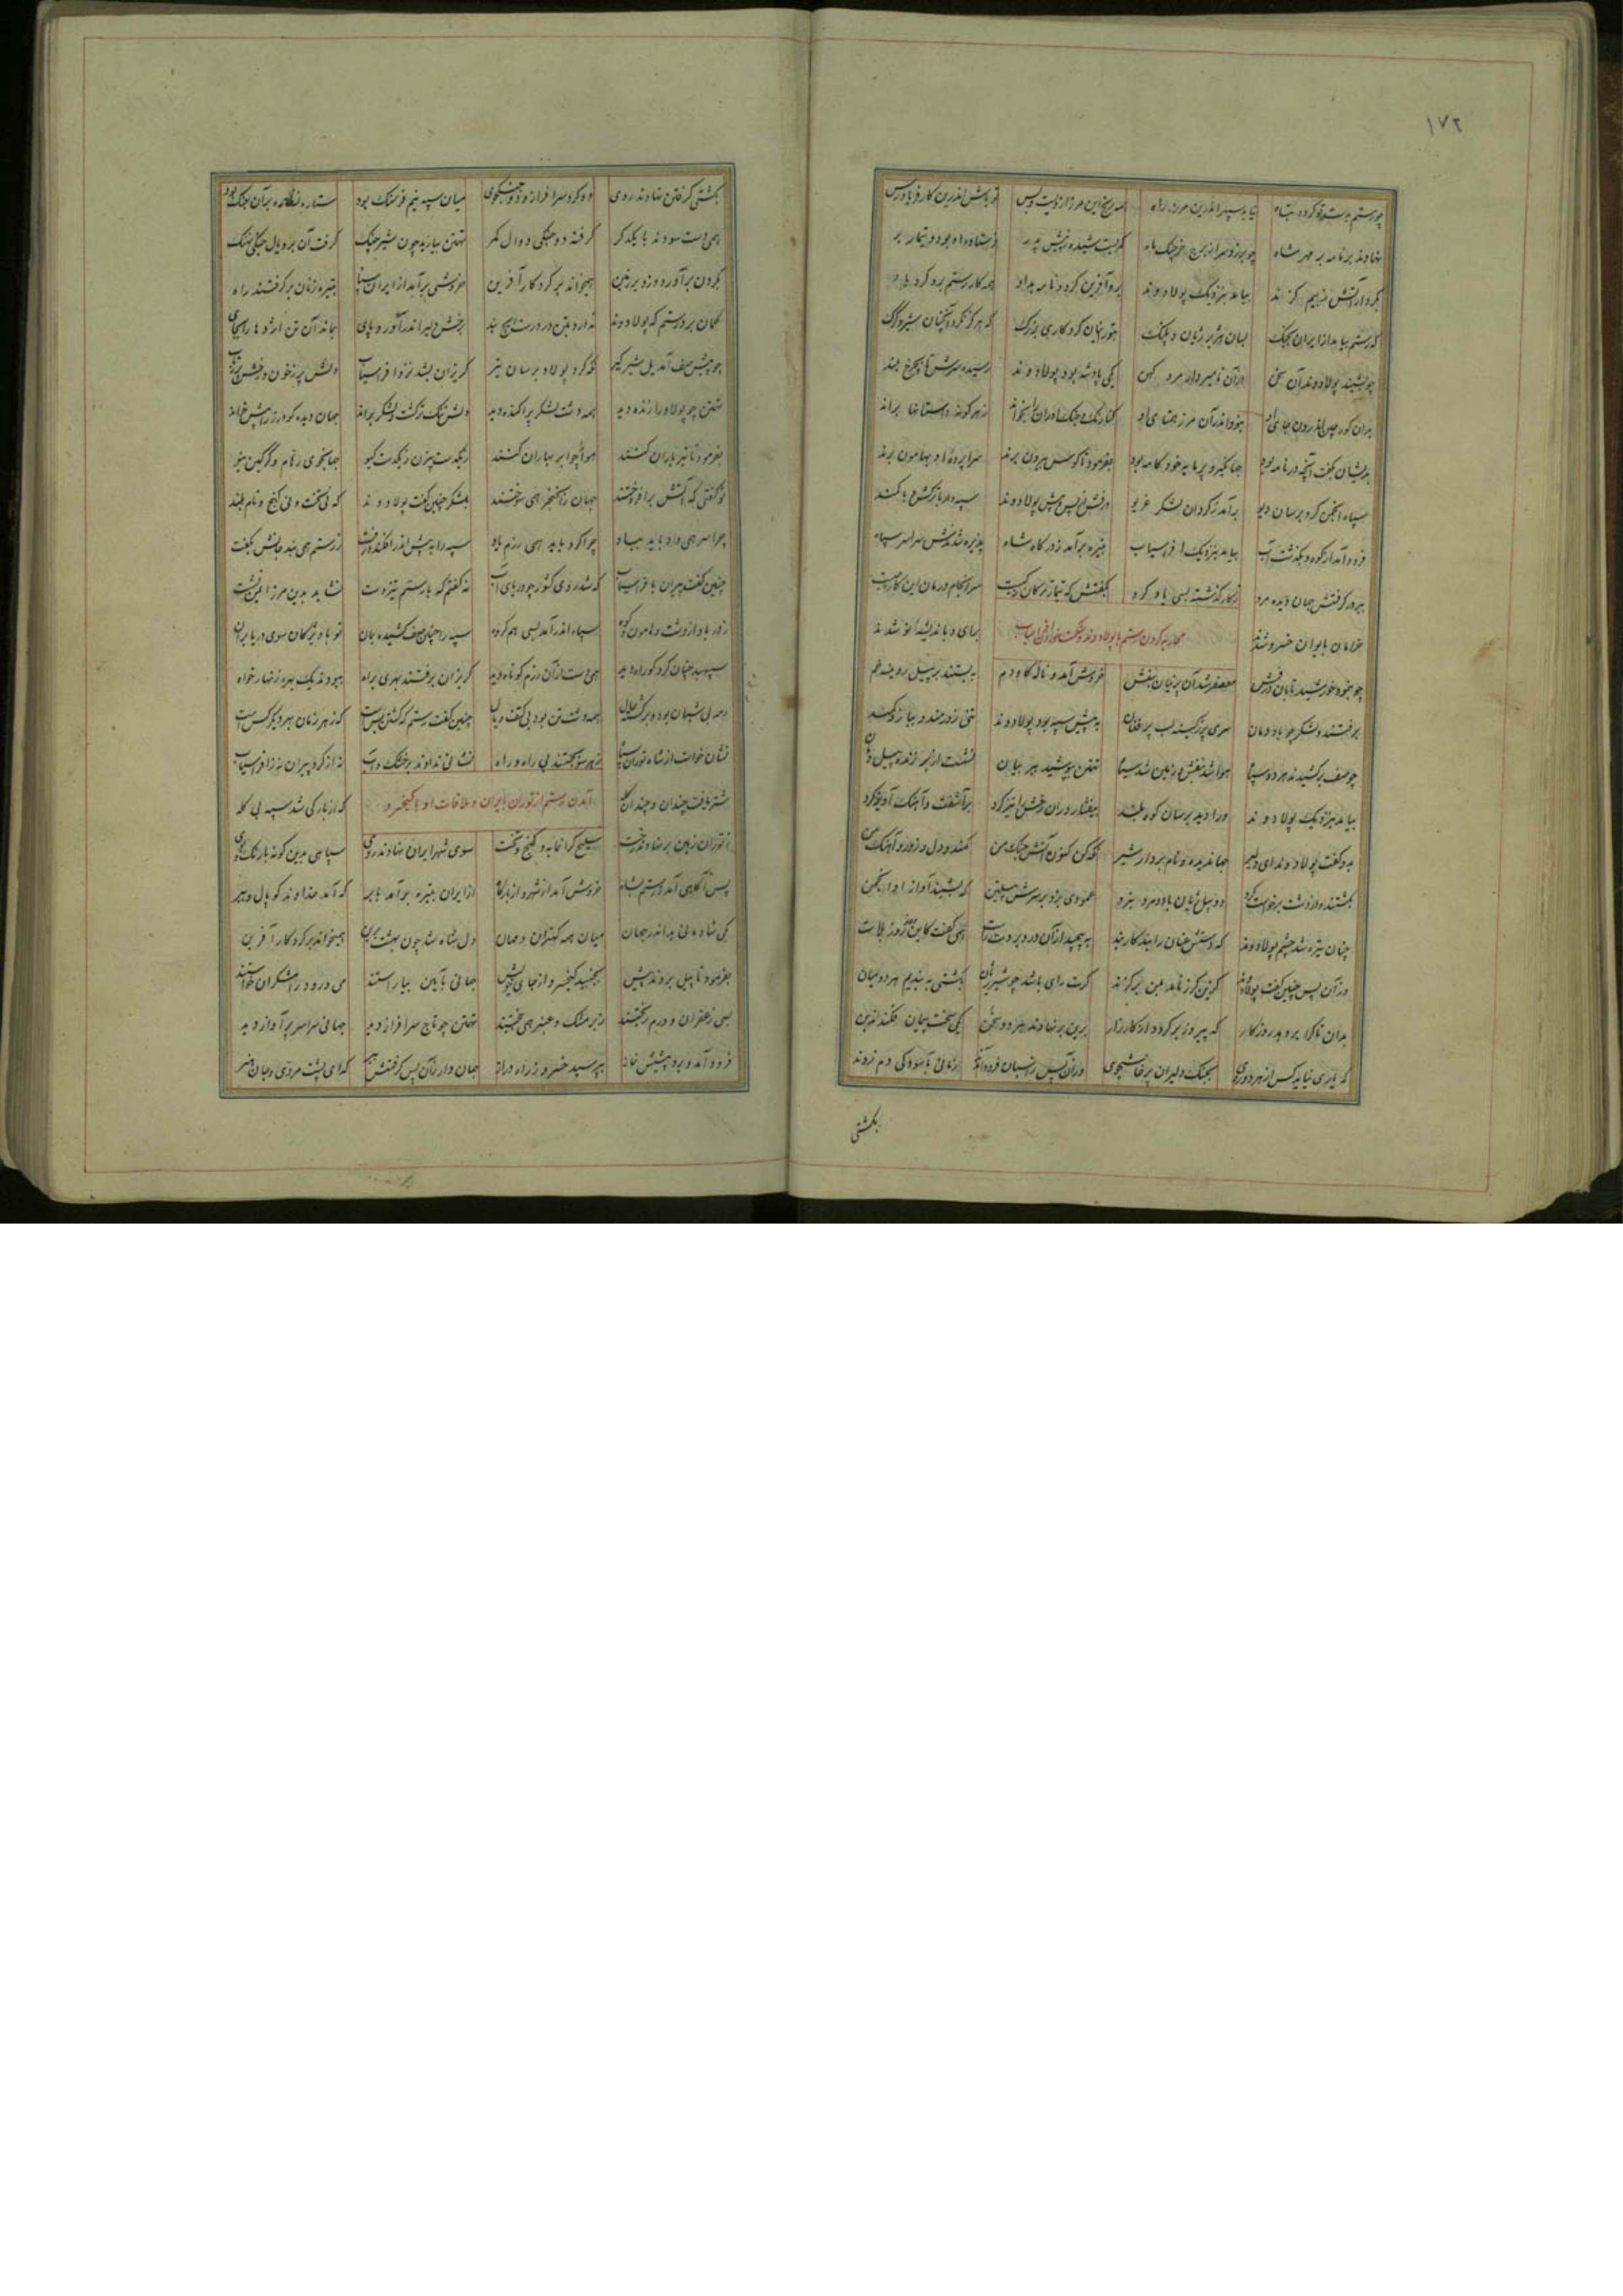 ۱۷۲
چو رستم بدست تو گردد تباه    بیابد سپهر اندرین مرز راه    همه رنج این مرز از ویست و بس    تو باش اندرین کار فریادرس
نهادند بر نامه بر مهر شاه    چو برزد سر از برج خرچنگ ماه    کمر بست شیده ز پیش پدر    فرستاده او بود و تیمار بر
بکردار آتش ز بیم گزند    بیامد بنزدیک پولادوند    برو آفرین کرد و نامه بداد    همه کار رستم برو کرد یاد
که رستم بیامد از ایران بجنگ    بسان هژبر ژیان و پلنگ
چو بشنید پولادوند آن سخن    یکی پادشه بود پولادوند    رسیده سرش تا بچرخ بلند
بدیشان بگفت آنچه در نامه بود    جهانگیر و برنا و خودکامه بود    بفرمود تا کوس بیرون برند    سراپرده او بهامون برند
سپاه انجمن کرد بر سان دیو    برآمد ز گردان لشکر غریو    درفش از پس و پیش پولادوند    سپردار با ترکش و با کمند
فرود آمد از کوه و بگذشت آب    بیامد بنزدیک افراسیاب    تبیره برآمد ز درگاه شاه    پذیره شدندش سراسر سپاه
ببر در گرفتش جهان دیده مرد    ز کار گذشته بسی یاد کرد    بگفتش که تیمار ترکان ز کیست    سرانجام درمان این کار چیست
خرامان بایوان خسرو شدند    محاربه کردن رستم با پولادوند و شکست خوردن افراسیاب    برای و باندیشه نو شدند
چو بنمود خورشید تابان درفش    معصفر شد آن پرنیان بنفش    خروش آمد و ناله گاودم    ببستند بر پیل رویینه خم
برفتند و لشکر چو باد دمان    به پیش سپه بود پولادوند    تنی زورمند و ببازو کمند
چو صف برکشیدند هر دو سپاه    هوا شد بنفش و زمین شد سیاه    تهمتن بپوشید ببر بیان    نشست از بر ژنده پیل دمان
بیامد بنزدیک پولادوند    ورا دید بر سان کوه بلند    بیفشارد ران رخش را تیز کرد    برآشفت و آهنگ آویز کرد
بدو گفت پولادوند ای دلیر    جهاندیده و نامبردار شیر    نگه کن کنون آتش جنگ من    کمند و دل و زور و آهنگ من
بگشتند و از دشت برخاست گرد    دو پیل ژیان یا دو مرد نبرد    عمودی بزد بر سرش پیلتن    که بشنید آواز او انجمن
چنان تیره شد چشم پولادوند    که دستش عنان را نبد کاربند    بپیچید از آن درد بر دست راست    همی گفت کاین روز روز بلاست
وز آن پس چنین گفت پولادوند    گزین گرز نامد بمن بر گزند    گرت رای باشد چو شیر ژیان    بکشتی ببندیم هر دو میان
بدان تا کرا بردهد روزگار    که پیروز برگردد از کارزار    برین برنهادند هر دو سخن    یکی سخت پیمان فکندند بن
که یاری نیاید کس از هر دو روی    بجنگ دلیران پرخاشجوی    وزان پس ز اسبان فرود آمدند    زمانی بآسودگی دم زدند
بکشتی
بکشتی گرفتن نهادند روی    دو گرد سرافراز و دو جنگجوی    میان سپه نیم فرسنگ بود    ستاره نظاره بر آن جنگ بود
همی دست سودند با یکدگر    گرفته دو جنگی دوال کمر    تهمتن بیازید چون شیر چنگ    گرفت آن بر و یال جنگی نهنگ
بگردن برآورد و زد بر زمین    همیخواند بر کردگار آفرین    خروشی برآمد از ایران سپاه    تبیره زنان برگرفتند راه
گمان برد رستم که پولادوند    ندارد بتن در درست ایچ بند    برخش دلیر اندر آورد پای    بماند آن تن اژدها را بجای
چو پیش صف آمد یل شیرگیر    نگه کرد پولاد بر سان تیر    گریزان بشد نزد افراسیاب    دلش پر ز خون و رخش پر ز آب
تهمتن چو پولاد را زنده دید    همه دشت لشکر پراکنده دید    دلش تنگتر گشت و لشکر براند    جهان دیده گودرز را پیش خواند
بفرمود تا تیرباران کنند    هوا چو ابر بهاران کنند    ز یکدست بیژن ز یکدست گیو    جهانجوی رهام و گرگین نیو
تو گفتی که آتش برافروختند    جهان را بخنجر همی سوختند    بلشکر چنین گفت پولادوند    که بی تخت و بی گنج و نام بلند
چرا سر همی داد باید بباد    چرا کرد باید همی رزم یاد    سپه را به پیش اندر افکند و رفت    ز رستم همی بند جانش بکفت
چنین گفت پیران بافراسیاب    که شد روی کشور چو دریای آب    نه گفتم که با رستم تیزدست    نشاید بدین مرز ایمن نشست
سپاه اندر آمد بسی هم گروه    سپه را چنان صف کشیده بمان    تو با ویژگان سوی دریا بران
سپهبد چنان کرد کو راه دید    همی دست از آن رزم کوتاه دید    گریزان برفتند بهری براه    ببودند یک بهره زنهارخواه
همه دشت تن بود بی کتف و یال    چنین گفت رستم که کشتن بس است    که زهر زمان بهر دیگر کس است
نشان خواست از شاه توران سپاه    ز هر سو بجستند بی راه و راه    نشانی ندادند بر خشک و آب    نه از گرد پیران نه ز افراسیاب
شتر یافت چندان و چندان گله    آمدن رستم از توران بایران و ملاقات او با کیخسرو    که از بارکی شد سپه بی گله
ز توران زمین بر نهادند رخت    سلیح گرانمایه و گنج و تخت    سوی شهر ایران نهادند روی    سپاهی بدین گونه با رنگ و بوی
پس آگاهی آمد ز رستم بشاه    خروش آمد از شهر و از بارگاه    از ایران تبیره برآمد بابر    که آمد خداوند گوپال و ببر
یکی شادمانی بد اندر جهان    میان همه کهتران و مهان    دل شاه شد چون بهشت برین    همیخواند بر کردگار آفرین
بفرمود تا پیل بردند پیش    بجنبید کیخسرو از جای خویش    جهانی بآیین بیاراستند    می و رود و رامشگران خواستند
بسی زعفران و درم ریختند    ز بر مشک و عنبر همی بیختند    تهمتن چو تاج سرافراز دید    جهانی سراسر پرآواز دید
فرود آمد و برد پیشش نماز    بپرسید خسرو ز راه دراز    جهاندار زان پس گرفتش ببر    که ای پشت مردی و جان هنر